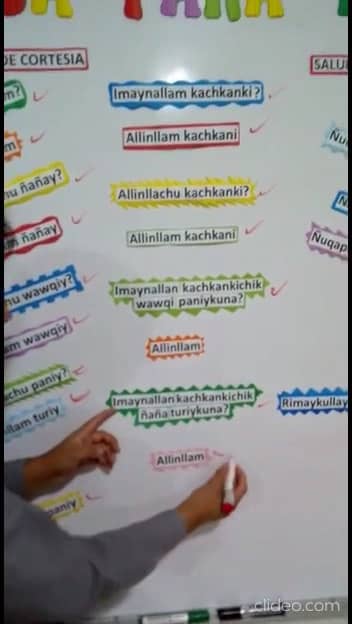 PARA
DE CORTESIA
m?
m
hu ñañay?
m ñañay
nu wawqiy?
am wawqiy
chu paniy?
llam turiy
paniy
Imaynallam kachkanki?
Allinllam kachkani
Allinllachu kachkanki?
Allinllam kachkani
Imaynallan kachkankichik
wawqi paniykuna?
Allinllam
Imaynallan kachkankichik
ñaña turiykuna?
Allinllam
SALU
Ñu
Ñuqap
Rimaykullay
clideo.com